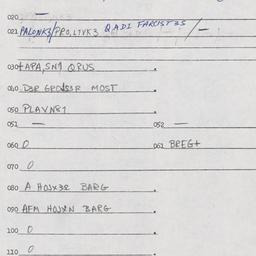 020 —
021 PALONK3/PRO,LTVK3 QADI FARCIST3S / —
030 +APA,SN1 QRUS .
040 D3R GROSS3R MOST .
050 PLAVN81 .
051 — 052 —
060 0 061 BREG+
070 0
080 A HOJX3R BARG .
090 AFM HOJXN BARG .
100 0 .
110 0 .